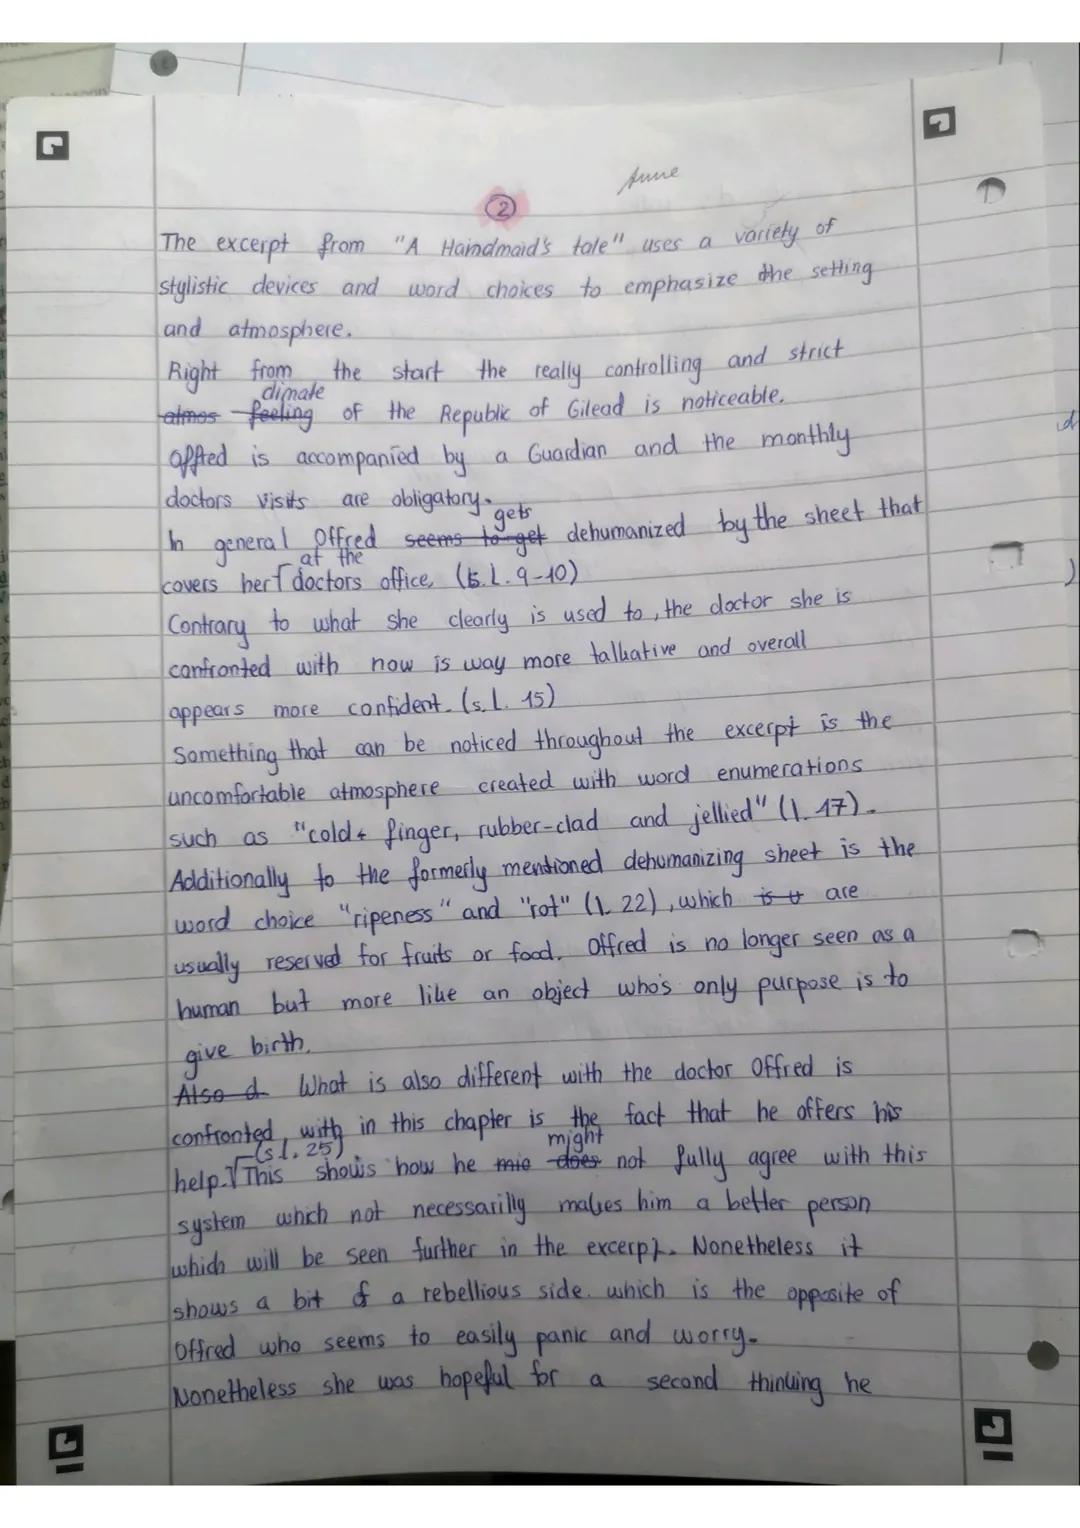 Anne
2
The excerpt from "A Haindmaid's tale" uses a variety of
stylistic devices and word choices to emphasize the setting
and atmosphere.
Right from the start the really controlling and strict
atmos feeling climate of the Republic of Gilead is noticeable.
Offred is accompanied by a Guardian and the monthly
doctors visits are obligatory.
In general Offred seems to get gets dehumanized by the sheet that
covers her at the doctors office, (s.l. 9-10)
Contrary to what she clearly is used to, the doctor she is
confronted with now is way more talkative and overall
appears more confident. (s.l. 15)
Something that can be noticed throughout the excerpt is the
uncomfortable atmosphere created with word enumerations
such as "cold finger, rubber-clad and jellied" (l. 17).
Additionally to the formerly mentioned dehumanizing sheet is the
word choice "ripeness" and "rot" (l. 22), which is are
usually reserved for fruits or food. Offred is no longer seen as a
human but more like an object who's only purpose is to
give birth.
Also d What is also different with the doctor Offred is
confronted, with in this chapter is the fact that he offers his
help. (s.l. 25) This shows how he does might not fully agree with this
system which not necessarilly makes him a better person
which will be seen further in the excerpt. Nonetheless it
shows a bit of a rebellious side. which is the opposite of
Offred who seems to easily panic and worry.
Nonetheless she was hopeful for a second thinking he